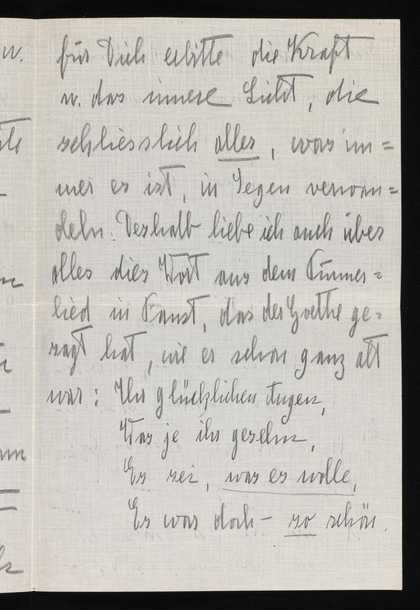 für Dich erbitte die Kraft
u. das innere Licht, die
schliesslich alles, was im=
mer es ist, in Segen verwan=
deln. Deshalb liebe ich auch über
alles dies Wort aus dem Türmer=
lied in Faust, das der Goethe ge=
sagt hat, wie er schon ganz alt
war: Ihr glücklichen Augen,
Was je ihr gesehn,
Es sei, was es wolle,
Es war doch – so schön.